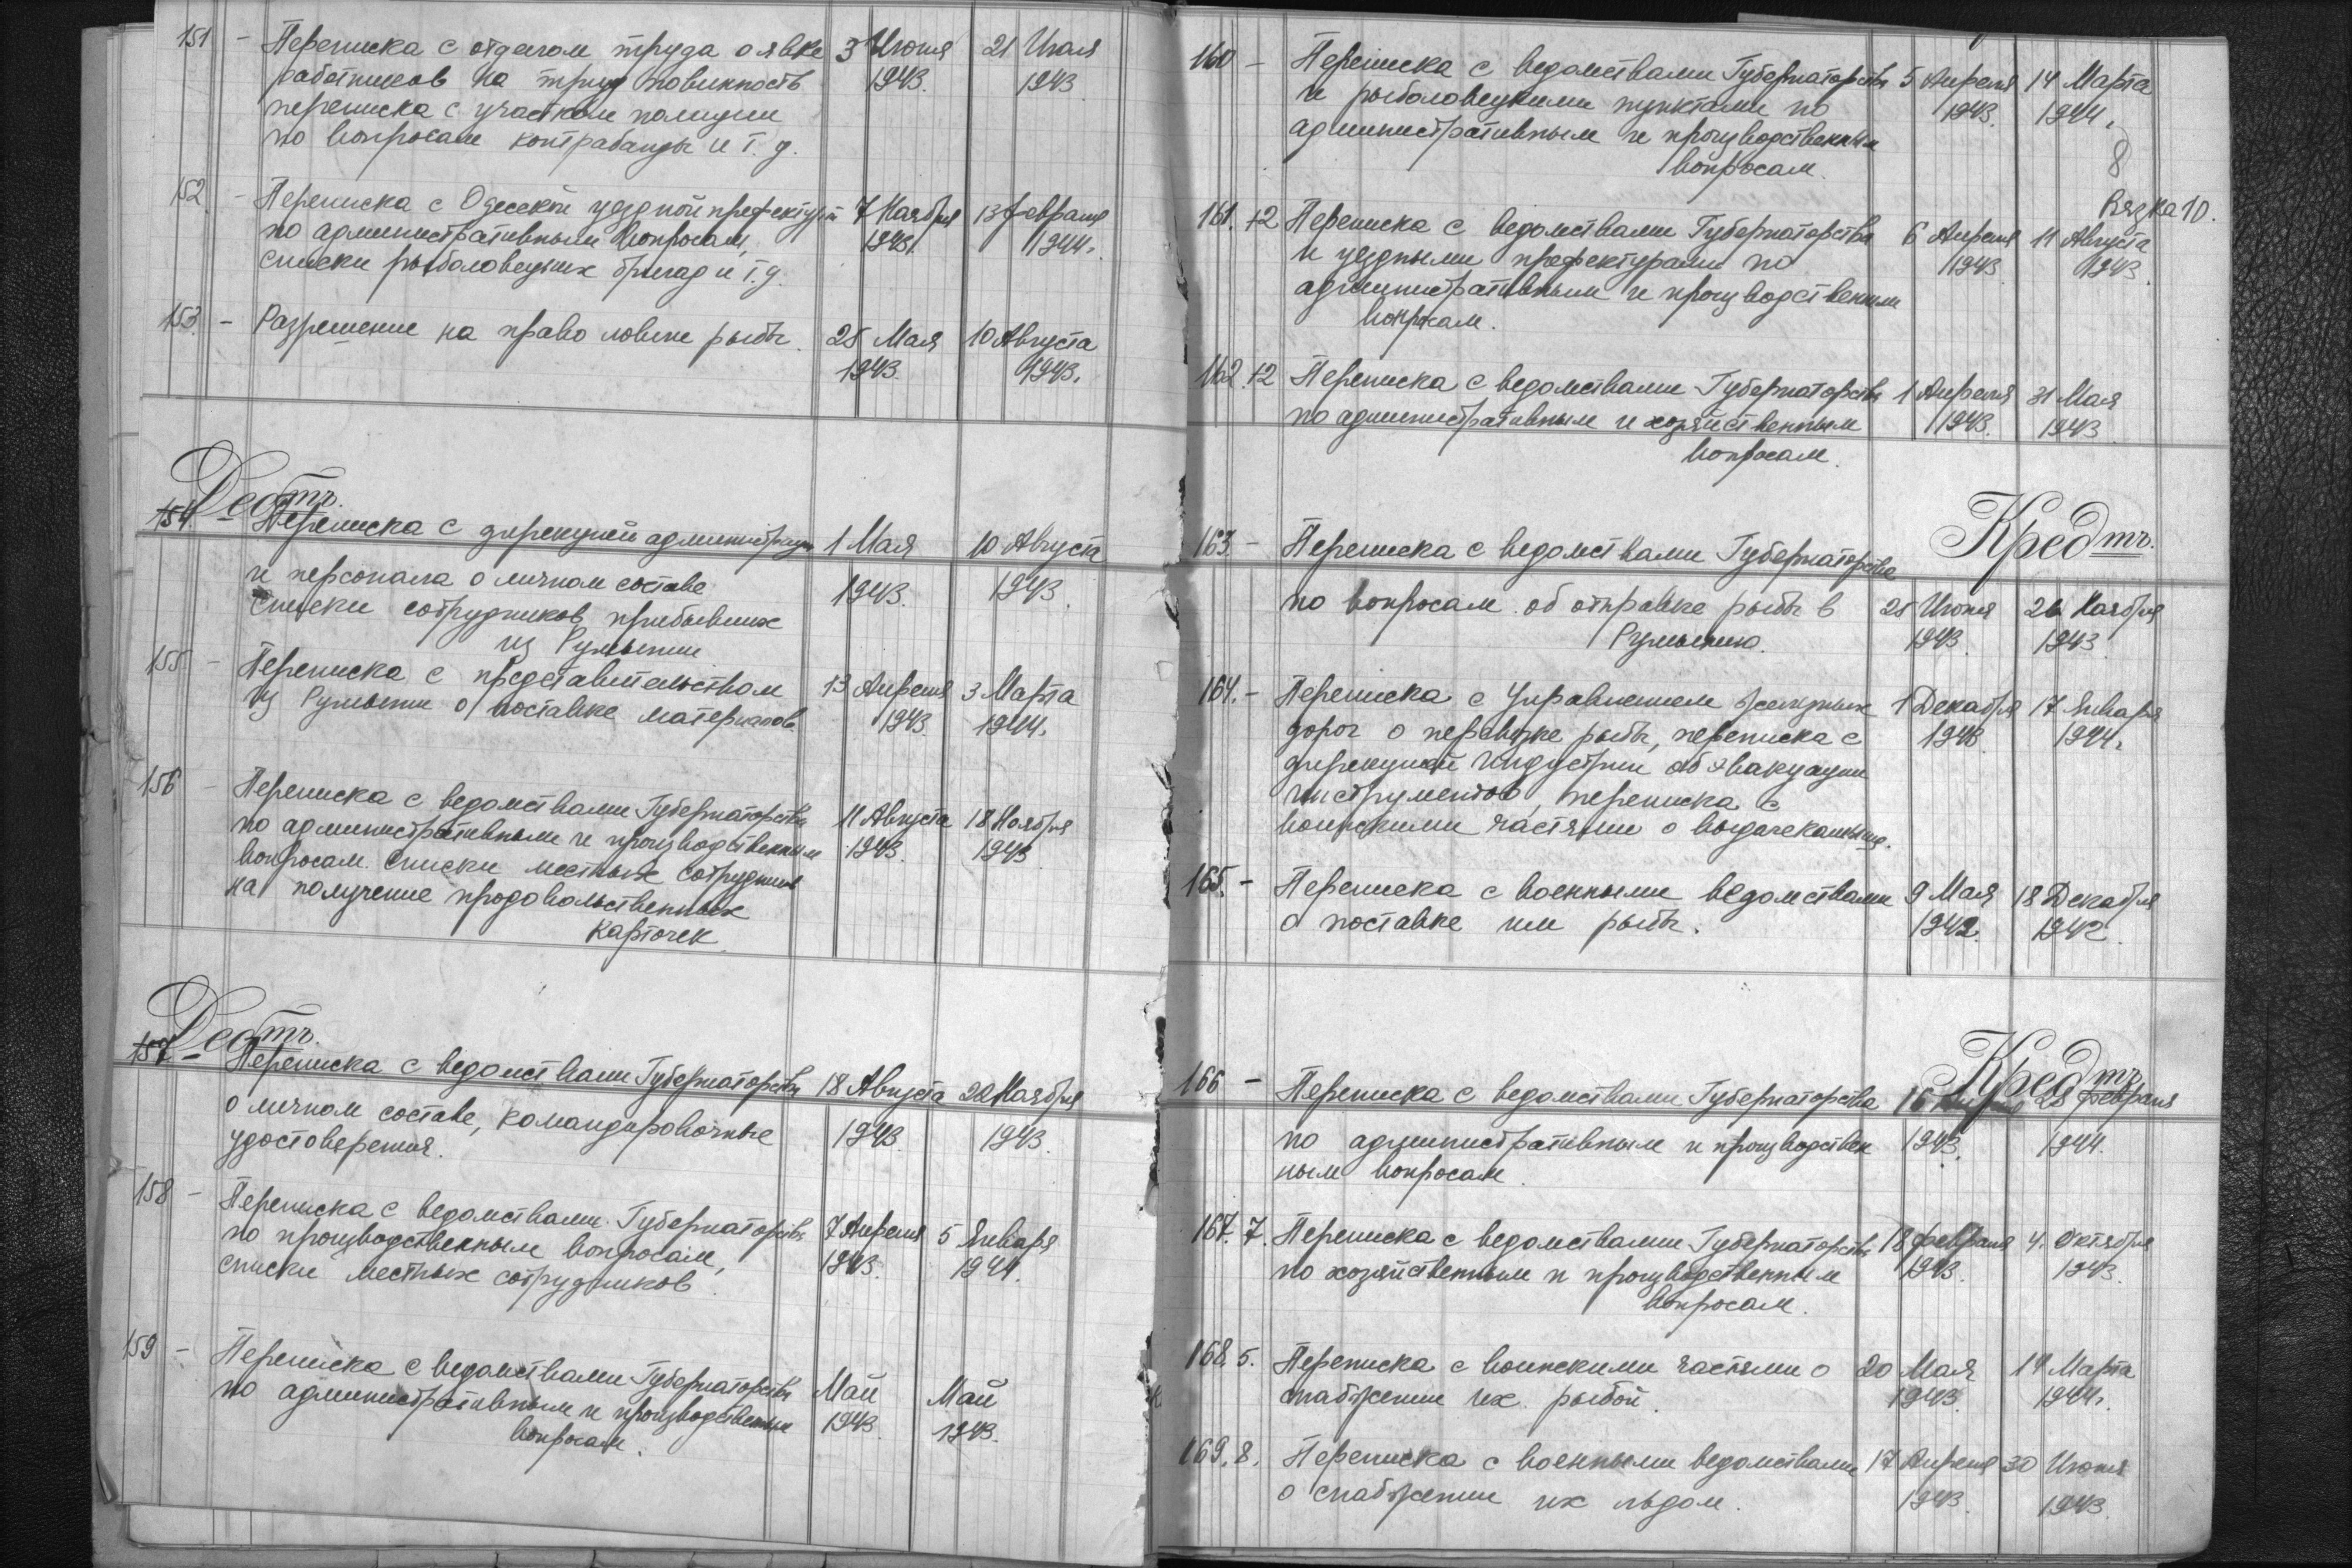 151 – Переписка с отделом труда о явке 3 Июня 21 Июля
работников на труд повинность 1943. 1943
переписка с участком полиции
по вопросам контрабанды и т. д.
152. – Переписка с Одесской уездной префектурой 7 Ноября 13 февраля
по административным вопросам, 1943. 1944.
списки рыболовецких бригад и т. д.
153. – Разрешение на право ловли рыбы. 25 Мая 10 Августа
1943. 1943.
Дебтъ.
154 – Переписка с дирекцией администрации 1 Мая 10 Августа
и персонала о личном составе 1943. 1943.
списки сотрудников, прибывших
из Румынии
155. – Переписка с представительством 13 Апреля 3 Марта
из Румынии о поставке материалов. 1943. 1944.
156 – Переписка с ведомствами Губернаторства 11 Августа 18 Ноября
по административным и производственным 1943. 1943
вопросам. списки местных сотрудников
на получение продовольственных
карточек
Дебтъ.
157. – Переписка с ведомствами Губернаторства 18 Августа 22 Ноября
о личном составе, командировочные 1943. 1943.
удостоверения.
158 – Переписка с ведомствами Губернаторства 7 Апреля 5 Января
по производственным вопросам, 1943. 1944.
списки местных сотрудников.
159 – Переписка с ведомствами Губернаторства Май Май
по административным и производственным 1943. 1943.
вопросам.
160 – Переписка с ведомствами Губернаторства 5 Апреля 14 Марта
и рыболовецкими пунктами по 1943. 1944.
административным и производственным
вопросам. 8
Вязка 10.
161. +2 Переписка с ведомствами Губернаторства 6 Апреля 11 Августа
и уездными префектурами по 1943 1943.
административным и производственным
вопросам.
162. +2 Переписка с ведомствами Губернаторства 1 Апреля 31 Мая
по административным и хозяйственным 1943. 1943
вопросам.
Кредтъ.
163 – Переписка с ведомствами Губернаторства
по вопросам об отправке рыбы в 25 Июня 26 Ноября
Румынию. 1943. 1943
164. – Переписка с Управлением железных 1 Декабря 17 Января
дорог о перевозке рыбы, переписка с 1943. 1944.
дирекцией индустрии об эвакуации
инструментов, переписка с
воинскими частями о выдаче
165. – Переписка с военными ведомствами 9 Мая 18 Декабря
о поставке им рыбы. 1942. 1942.
Кредтъ.
166 – Переписка с ведомствами Губернаторства 16 28 февраля
по административным и производствен 1943. 1944.
ным вопросам.
167. 7. Переписка с ведомствами Губернаторства 18 февраля 4. Октября
по хозяйственным и производственным 1943. 1943.
вопросам.
168. 5. Переписка с воинскими частями о 20 Мая 19 Марта
снабжении их рыбой. 1943. 1944.
169. 8. Переписка с военными ведомствами 17 Апреля 30 Июня
о снабжении их льдом. 1943. 1943.